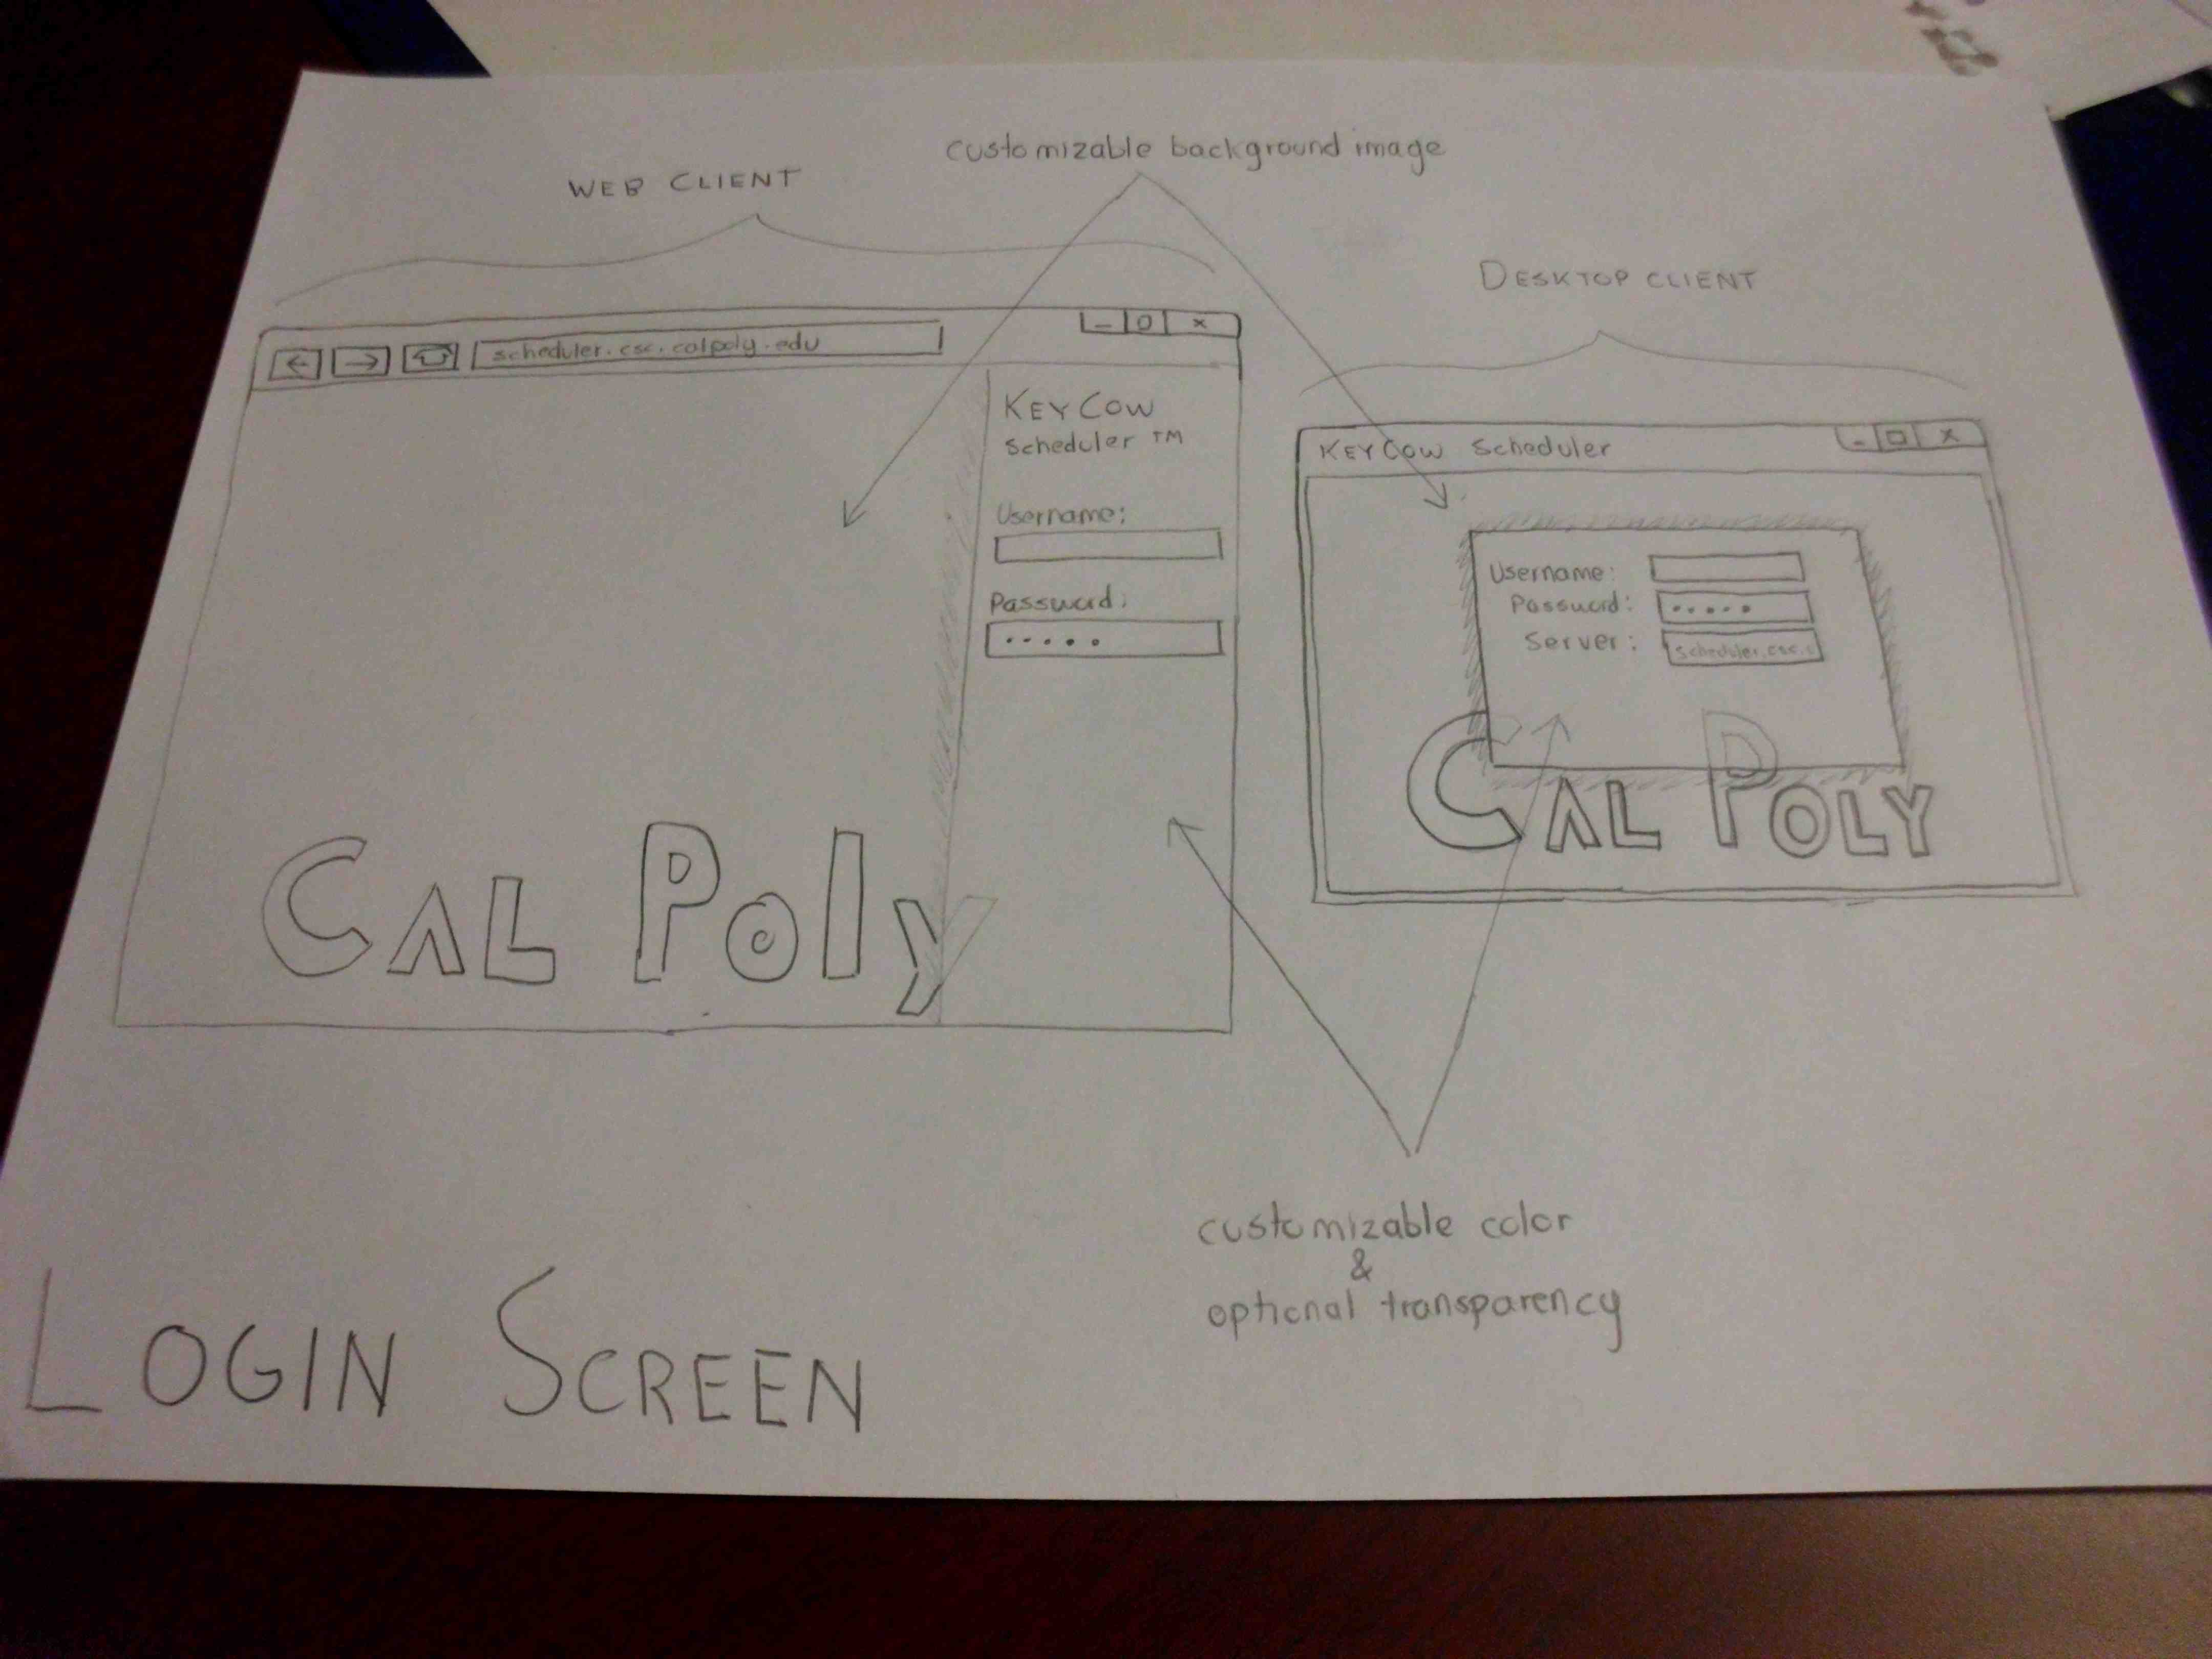 customizable background image
WEB CLIENT
DESKTOP CLIENT
scheduler.csc.calpoly.edu
KEYCOW
Scheduler TM
Username:
Password:
.....
CAL Poly
KEYCOW Scheduler
Username:
Password: .....
Server: scheduler.csc.c
CAL POLY
customizable color
&
optional transparency
LOGIN SCREEN